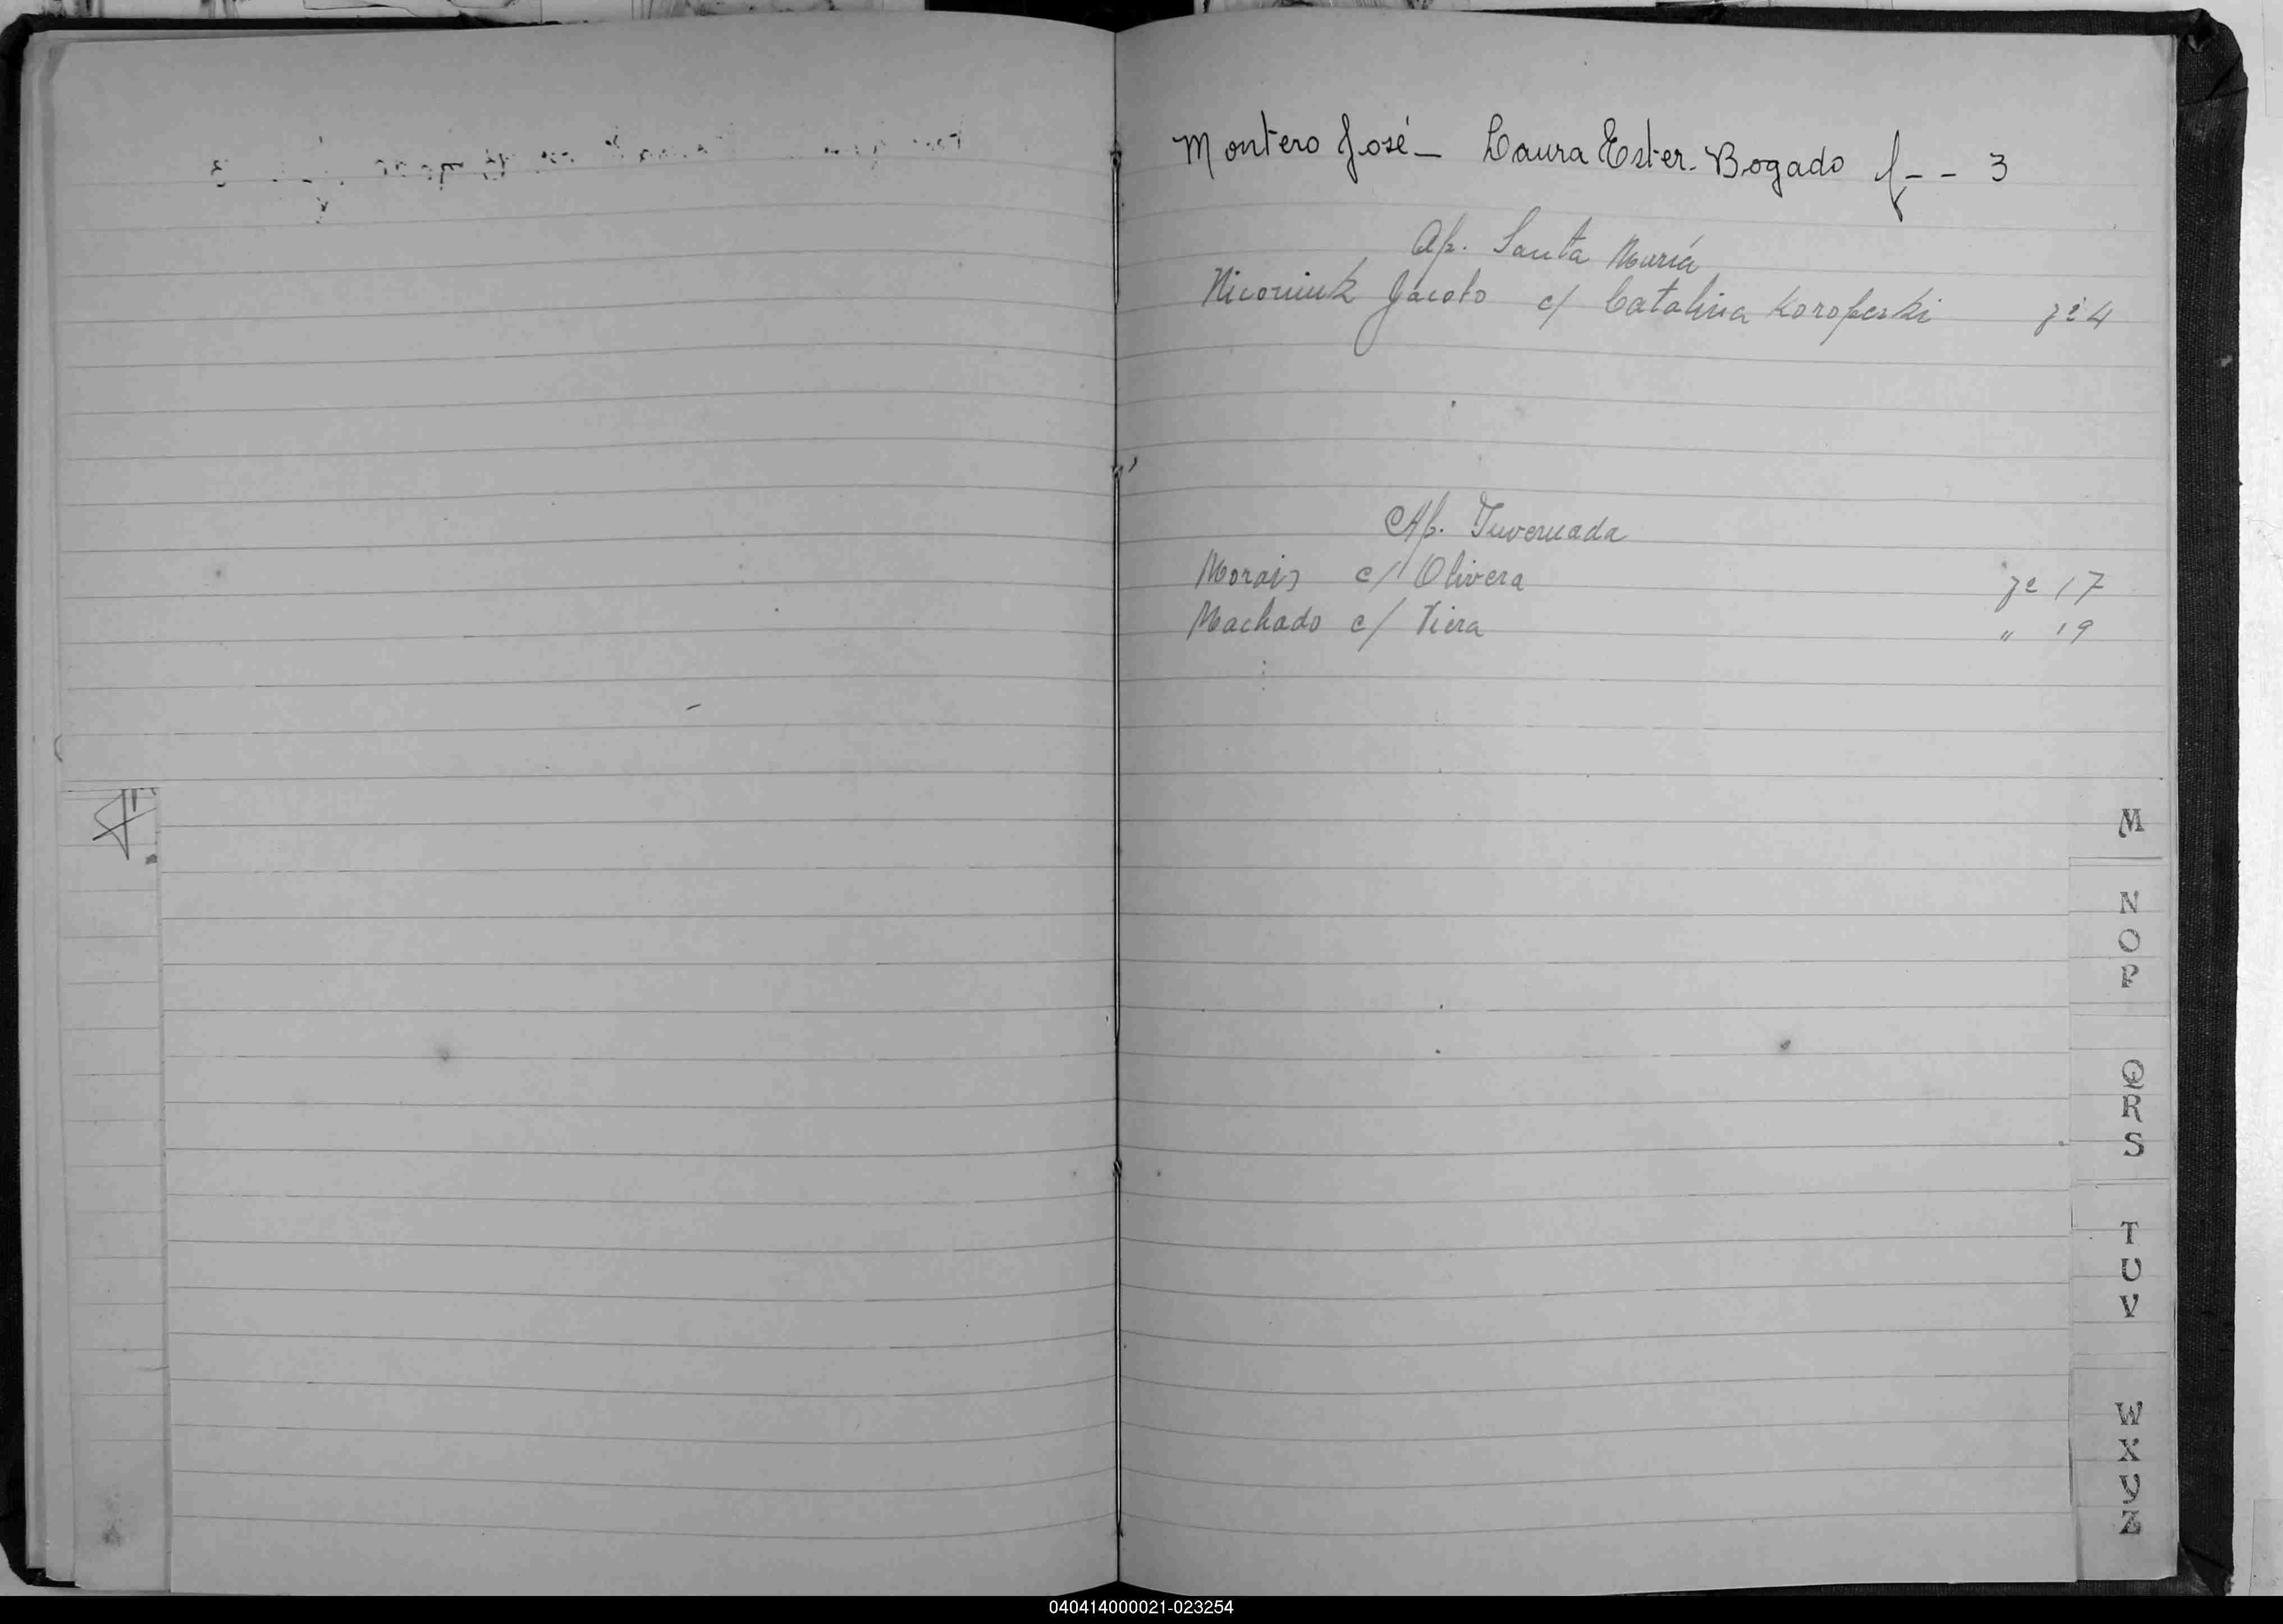 Montero José - Laura Ester Bogado f - - 3
Ap. Santa María
Nicoriuk Jacobo c/ Catalina Koropeski 4
Ap. Tuveruada
Morais c/ Olivera fº 17
Machado c/ Viera " 19
M
N
O
P
Q
R
S
T
U
V
W
X
Y
Z
040414000021-023254